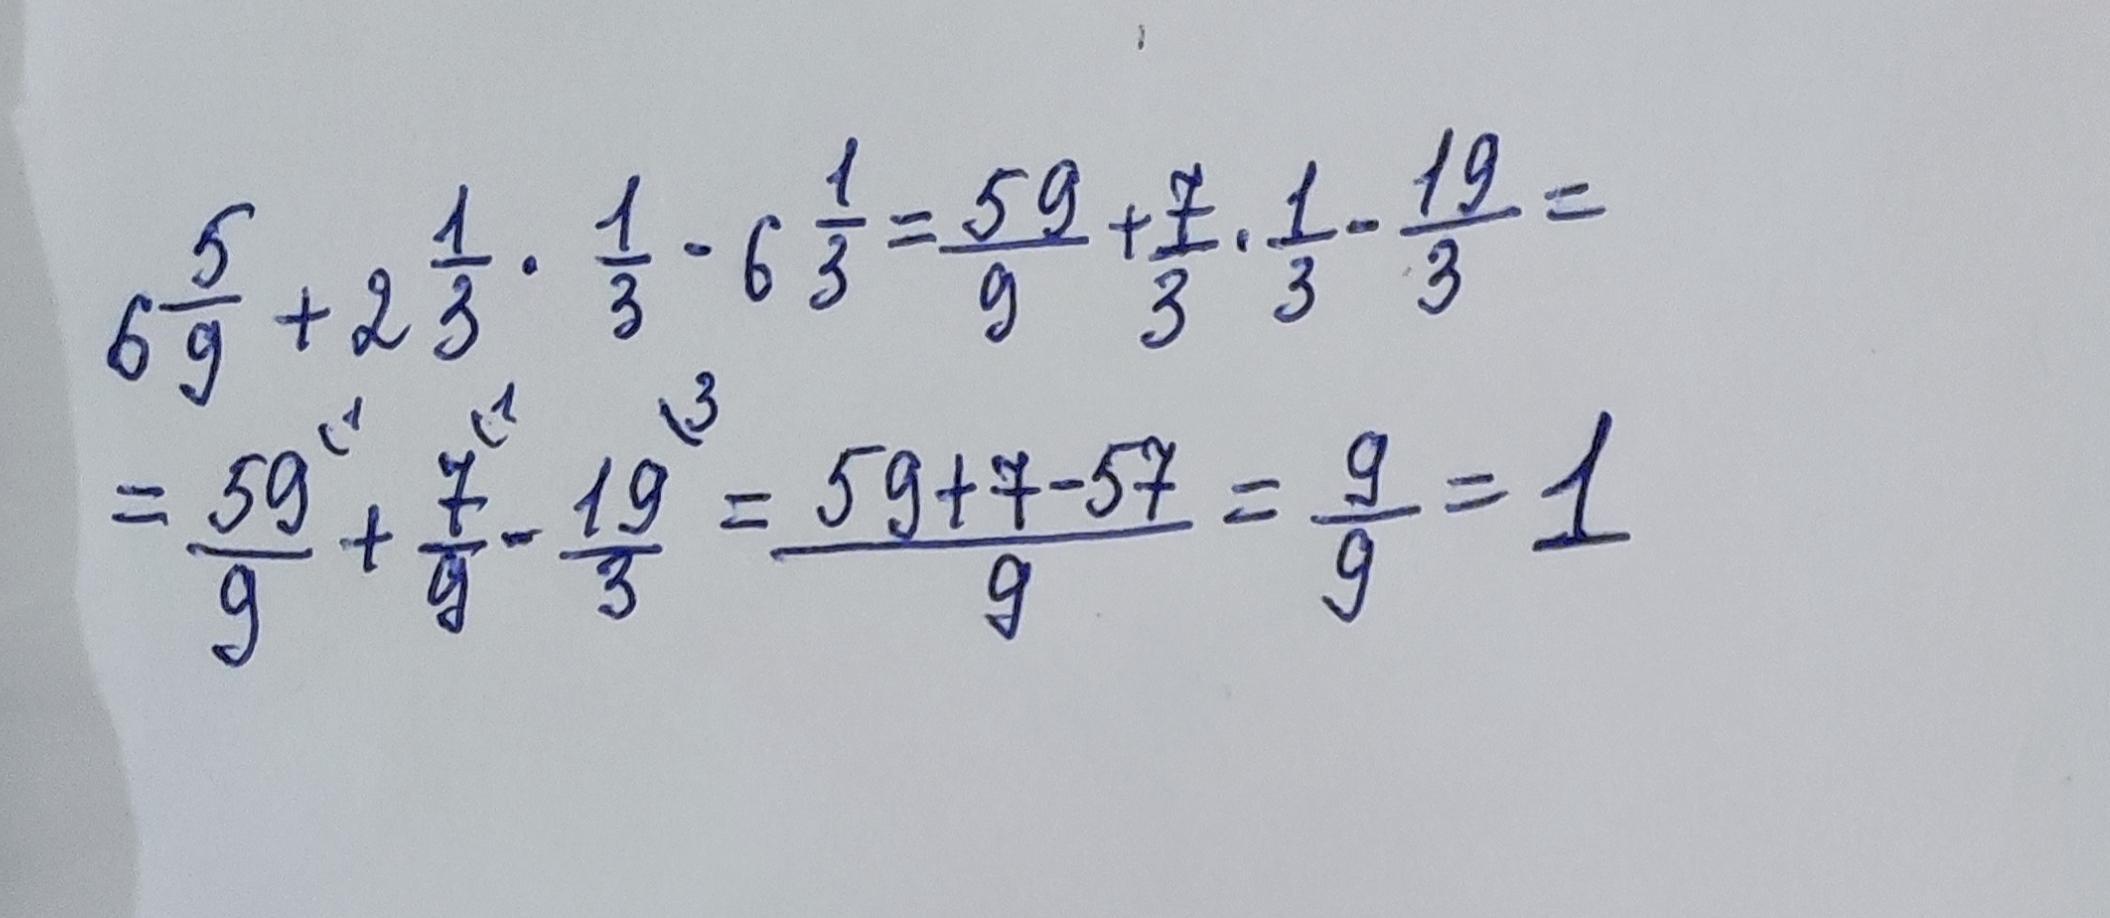 6 5/9 + 2 1/3 · 1/3 - 6 1/3 = 59/9 + 7/3 · 1/3 - 19/3 =
= 59\1/9 + 7\1/9 - 19\3/3 = 59+7-57/9 = 9/9 = 1